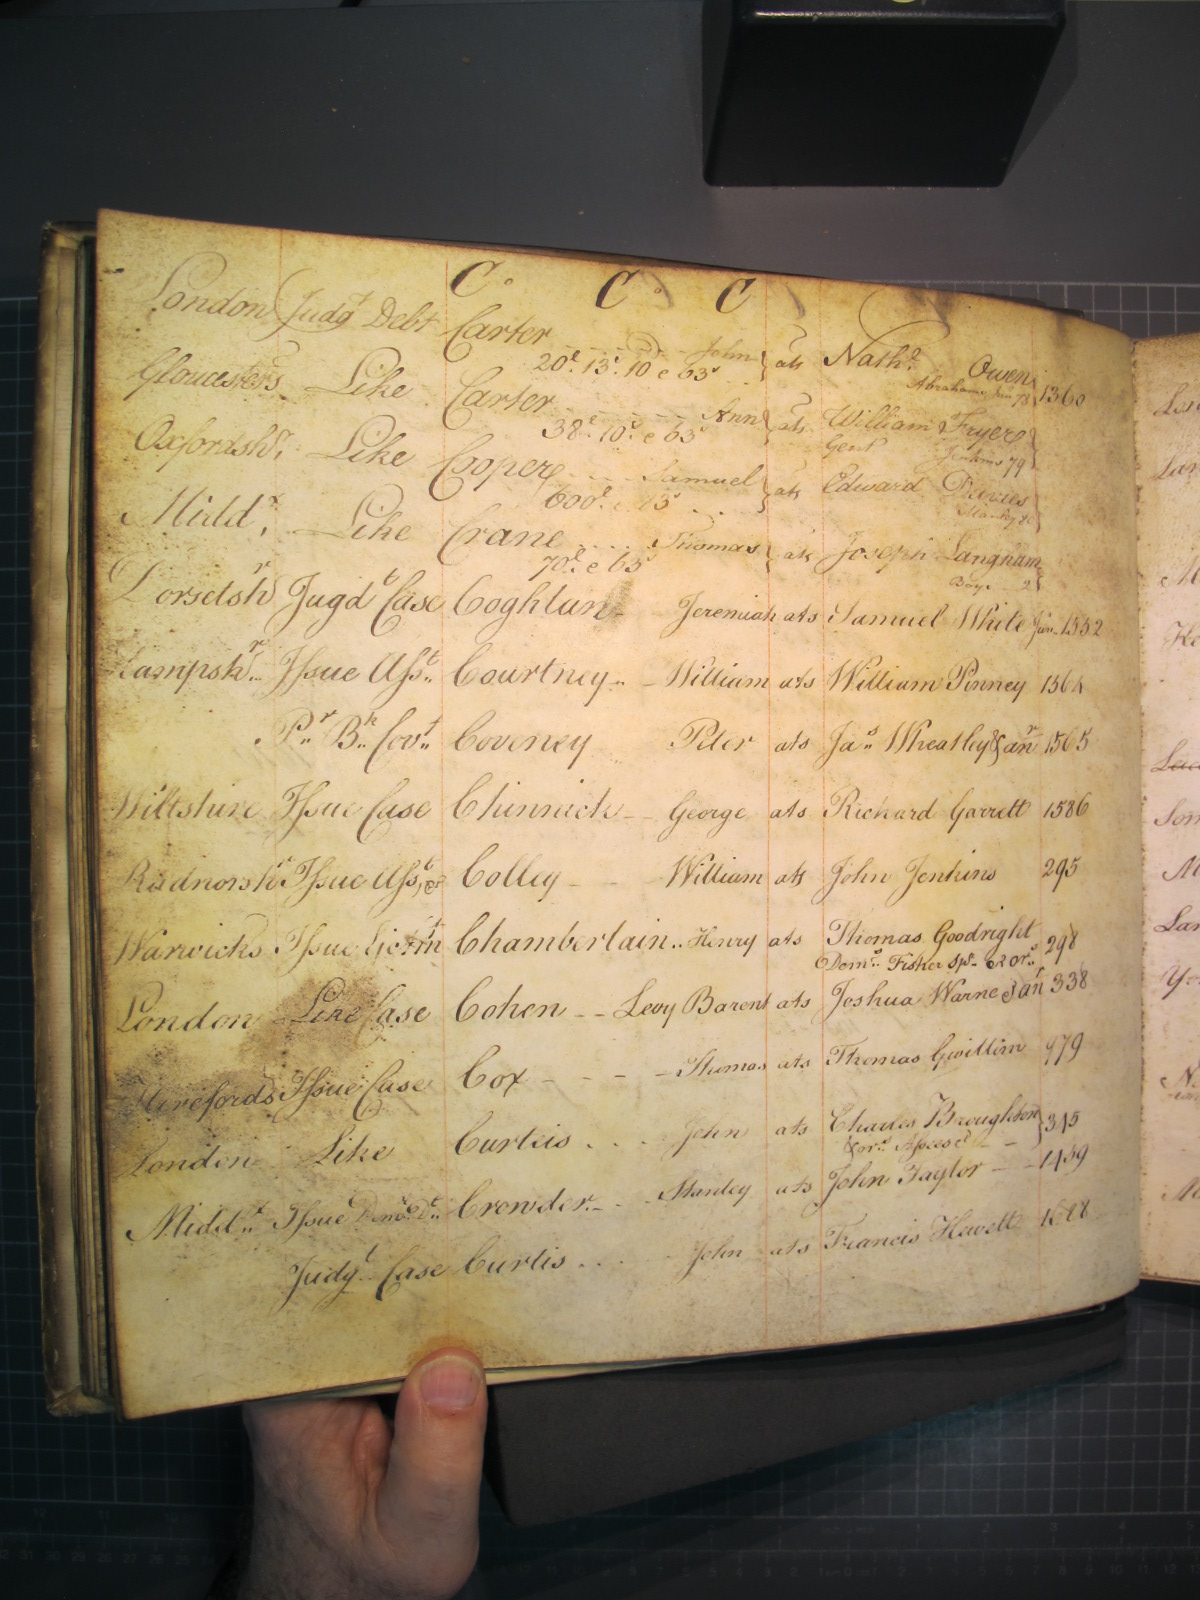 C. C. C
London Judgt Debt Carter John ats Nathl Owen 1360
20£ 13s 10d & 63s Abrahams 78
Gloucesters Like Carter Ann ats William Fryer
38£ 10s & 63s Gent Jenkins 79
Oxfordshr. Like Cooper Samuel ats Edward Davies
600£ & 73s
Middx. Like Crane Thomas ats Joseph Langham
70£ & 63s
Dorsetshr Jugdt Case Coghlan Jeremiah ats Samuel White Jun 1552
Hampshr. Issue Asst. Courtney William ats William Pinney 1564
Pr. Bk. Covt. Coveney Peter ats Jas. Wheatley & anr 1565
Wiltshire Issue Case Chinnick George ats Richard Garrett 1586
Radnorshr Issue Asst, &c Colley William ats John Jenkins 295
Warwicks Issue Ejectmt Chamberlain Henry ats Thomas Goodright 298
Demo. Fisher Sps. & ors.
London Like Case Cohen Levy Barent ats Joshua Warne & anr 338
Herefords Issue Case Cox Thomas ats Thomas Gwillim 979
London Like Curteis John ats Charles Broughton 345
& ors. Assees
Middx. Issue Crowder Stanley ats John Taylor 1459
Judgt. Case Curtis John ats Francis Hewett 1688